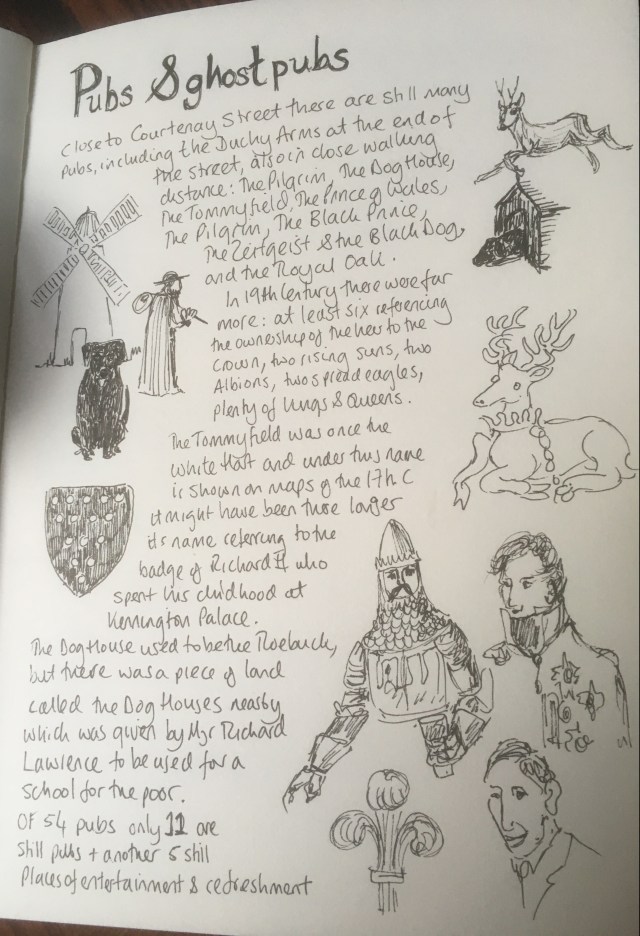 Pubs & ghost pubs
Close to Courtenay Street there are still many
pubs, including the Duchy Arms at the end of
the street, also in close walking
distance: The Pilgrim, The Dog House,
The Tommyfield, The Prince of Wales,
The Pilgrim, The Black Prince,
The Zeitgeist & the Black Dog,
and the Royal Oak.
In 19th Century there were far
more: at least six referencing
the ownership of the heir to the
Crown, two rising suns, two
Albions, two spread eagles,
plenty of Kings & Queens.
The Tommyfield was once the
White Hart and under this name
is shown on maps of the 17th C
it might have been there longer
its name referring to the
badge of Richard II who
spent his childhood at
Kennington Palace.
The Dog House used to be the Roebuck,
but there was a piece of land
called the Dog Houses nearby
which was given by Mr Richard
Lawrence to be used for a
school for the poor.
OF 54 pubs only 11 are
still pubs + another 5 still
Places of entertainment & refreshment